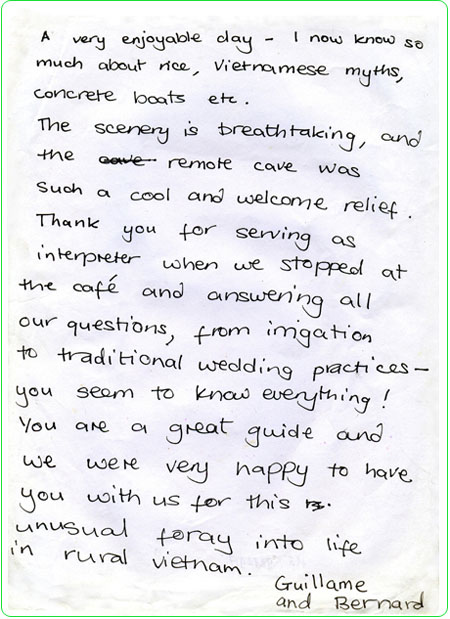 A very enjoyable day - I now know so
much about rice, Vietnamese myths,
concrete boats etc.
The scenery is breathtaking, and
the cave remote cave was
such a cool and welcome relief.
Thank you for serving as
interpreter when we stopped at
the café and answering all
our questions, from irrigation
to traditional wedding practices -
you seem to know everything!
You are a great guide and
we were very happy to have
you with us for this
unusual foray into life
in rural vietnam.
Guillame
and Bernard